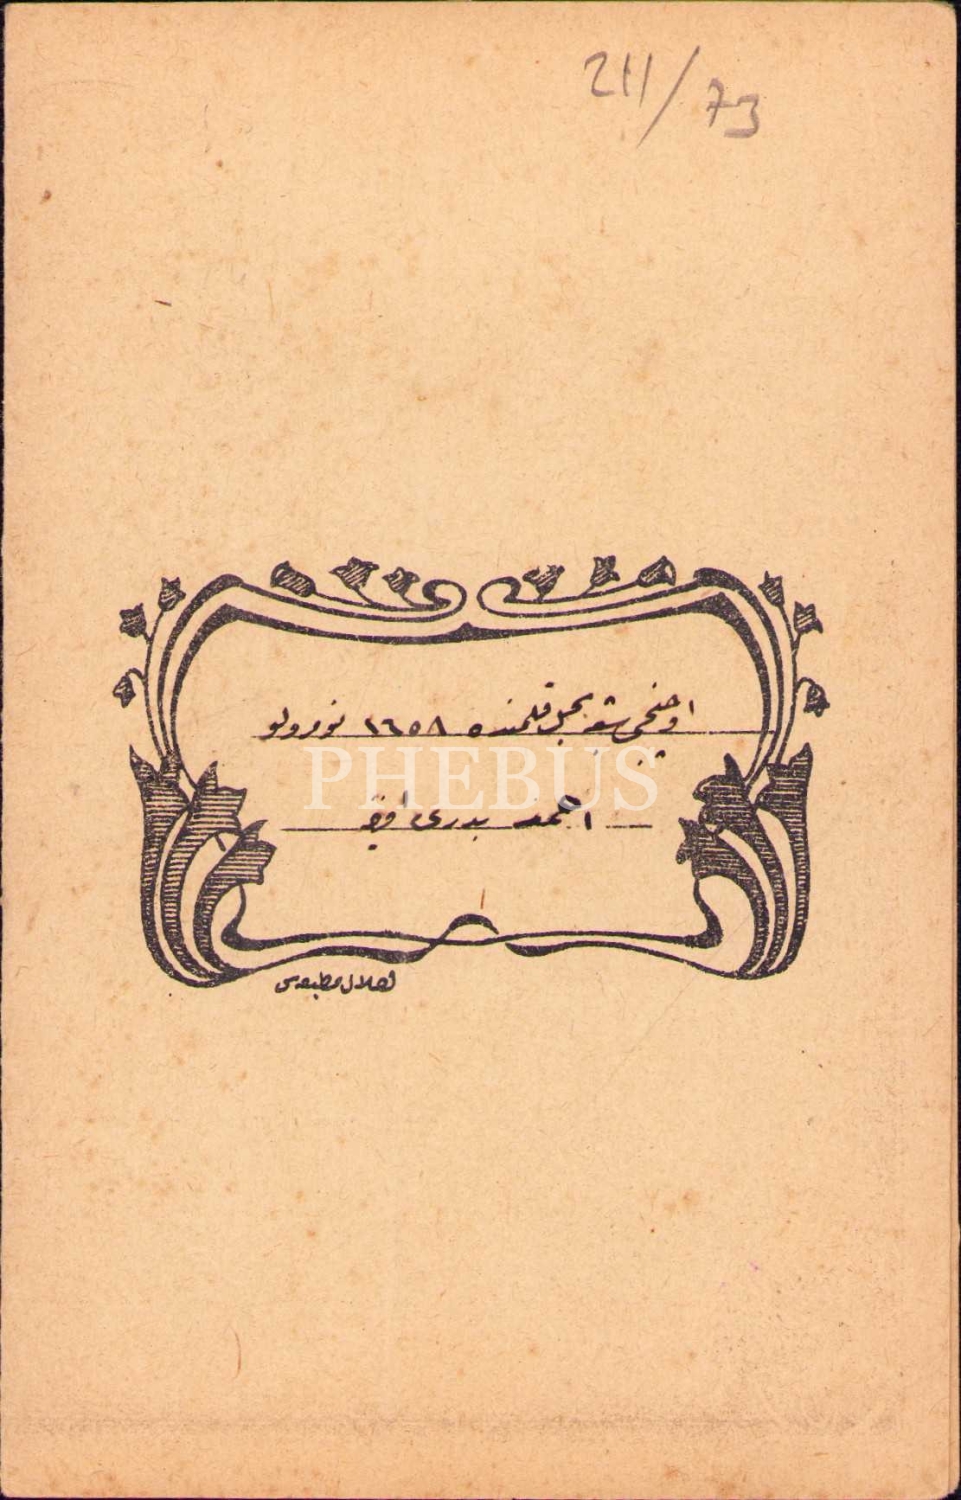 211/73
اوچنجی شعبه سجل قلمنده ١٦٥٨ نومرولو
PHEBUS
احمد بدری افندی
هلال مطبعه‌سی